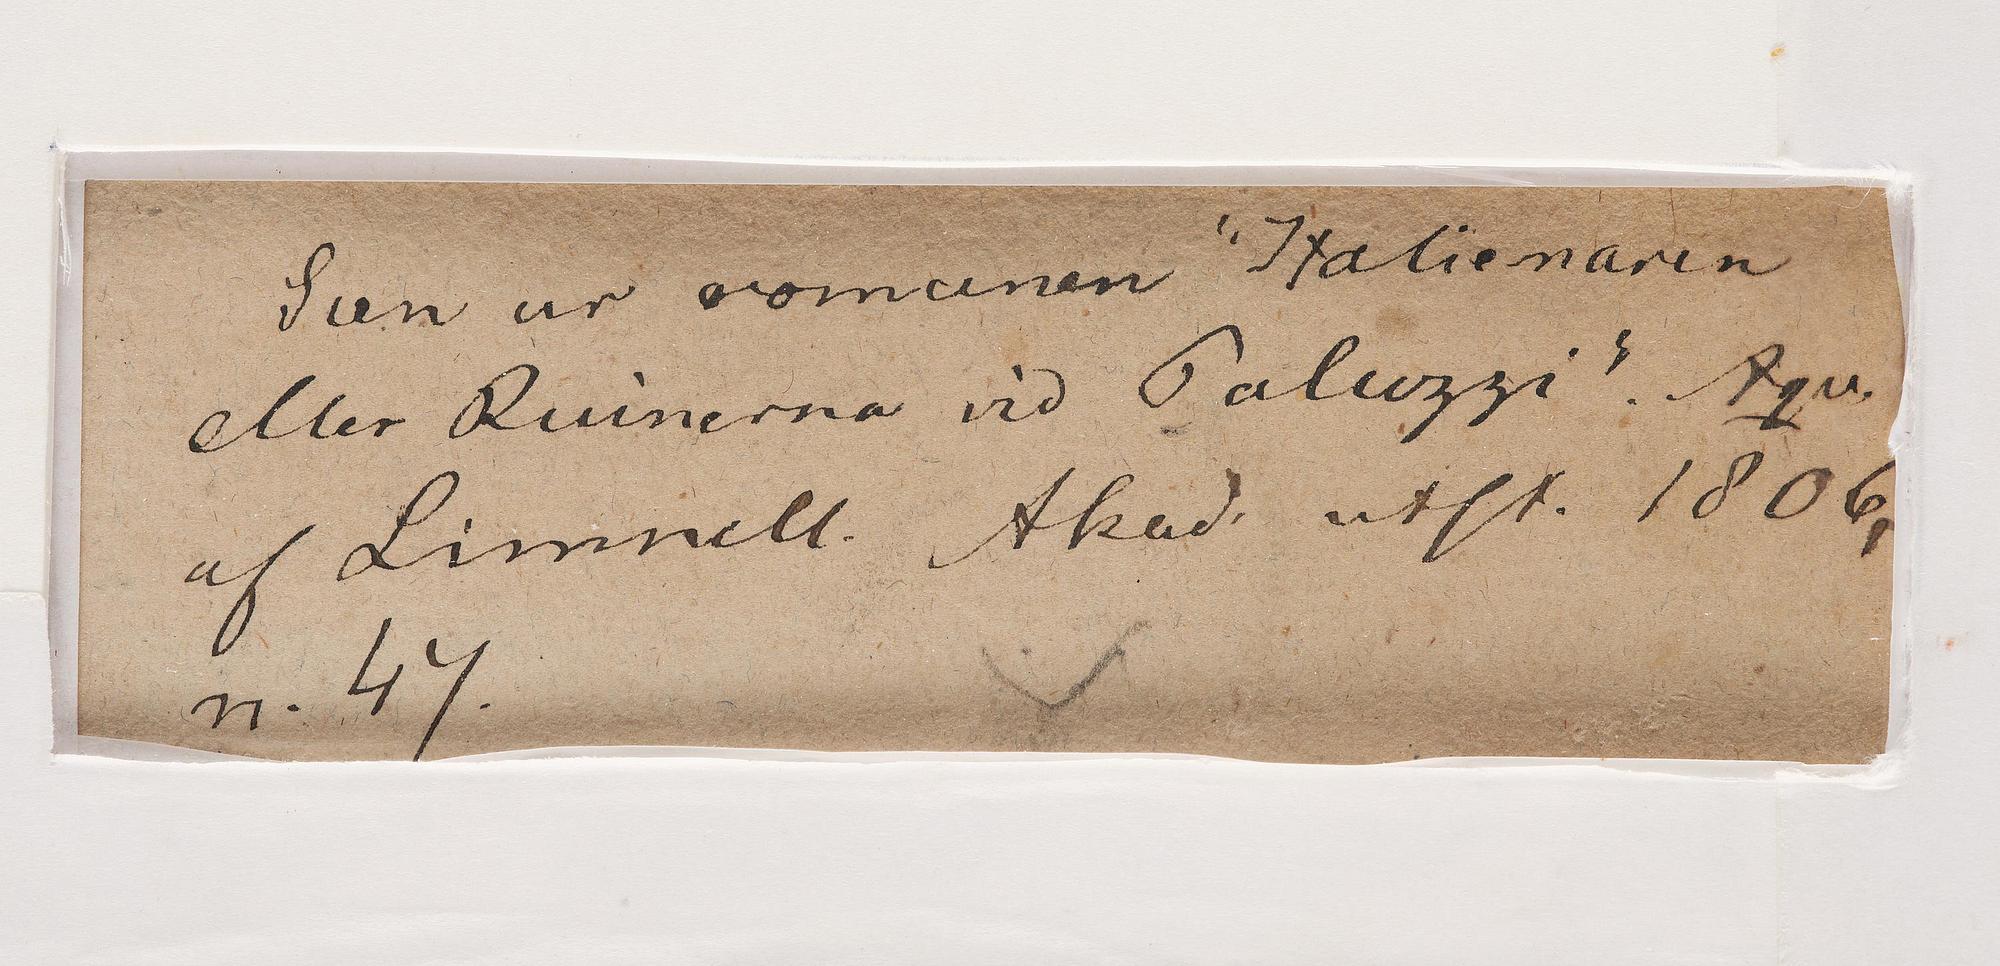 Scen ur romanen "Italienaren
eller Ruinerna vid Paluzzi". Aqu.
af Limnell. Akad. utst. 1806,
n. 47.